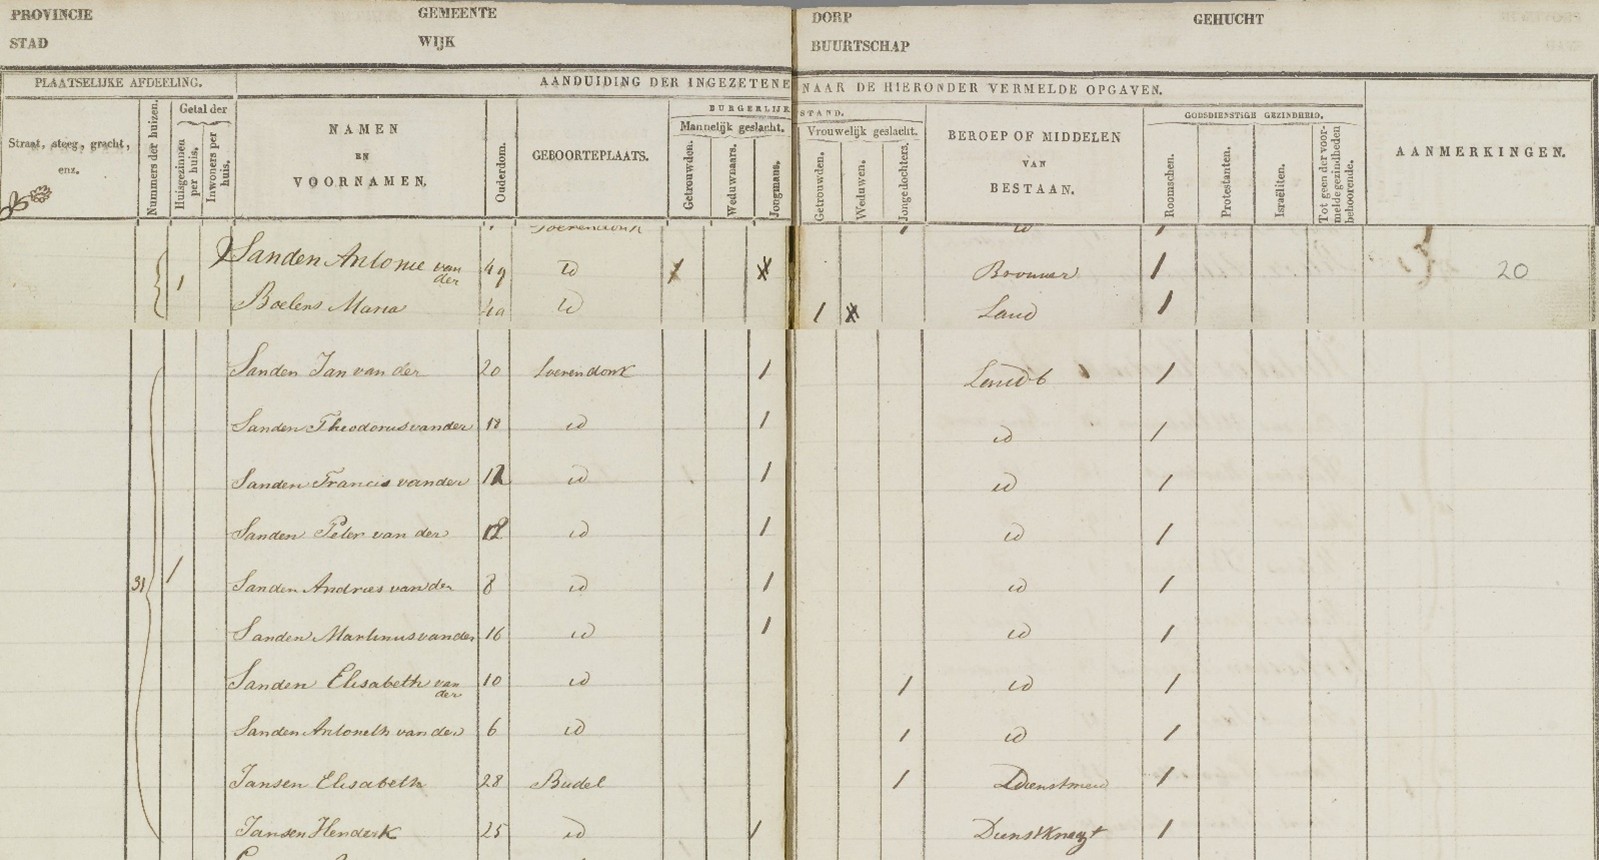 PROVINCIE GEMEENTE DORP GEHUCHT
STAD WIJK BUURTSCHAP
PLAATSELIJKE AFDEELING. AANDUIDING DER INGEZETENE NAAR DE HIERONDER VERMELDE OPGAVEN.
Straat, steeg, gracht, enz.
Nummers der huizen.
Getal der
Huisgezinnen per huis.
Inwoners per huis.
NAMEN
EN
VOORNAMEN.
Ouderdom.
GEBOORTEPLAATS.
BURGERLIJK STAND.
Mannelijk geslacht.
Getrouwden.
Weduwnaars.
Jongmans.
Vrouwelijk geslacht.
Getrouwden.
Weduwen.
Jongedochters.
BEROEP OF MIDDELEN
VAN
BESTAAN.
GODSDIENSTIGE GEZINDHEID.
Roomschen.
Protestanten.
Israëliten.
Tot geen der voormelde gezindheden behoorende.
AANMERKINGEN.
1 Sanden Antonie van der 49 id 1 Brouwer 1 20
Boelens Maria id 1 Land 1
Sanden Jan van der 20 Soerendonk 1 Landb 1
Sanden Theodorus vander 18 id 1 id 1
Sanden Francis vander 12 id 1 id 1
Sanden Peter van der 12 id 1 id 1
31 1 Sanden Andries van der 8 id 1 id 1
Sanden Martinus vander 16 id 1 id 1
Sanden Elisabeth van der 10 id 1 id 1
Sanden Antoneth van der 6 id 1 id 1
Jansen Elisabeth 28 Budel 1 Dienstmeid 1
Jansen Henderk 25 id 1 Dienstknegt 1